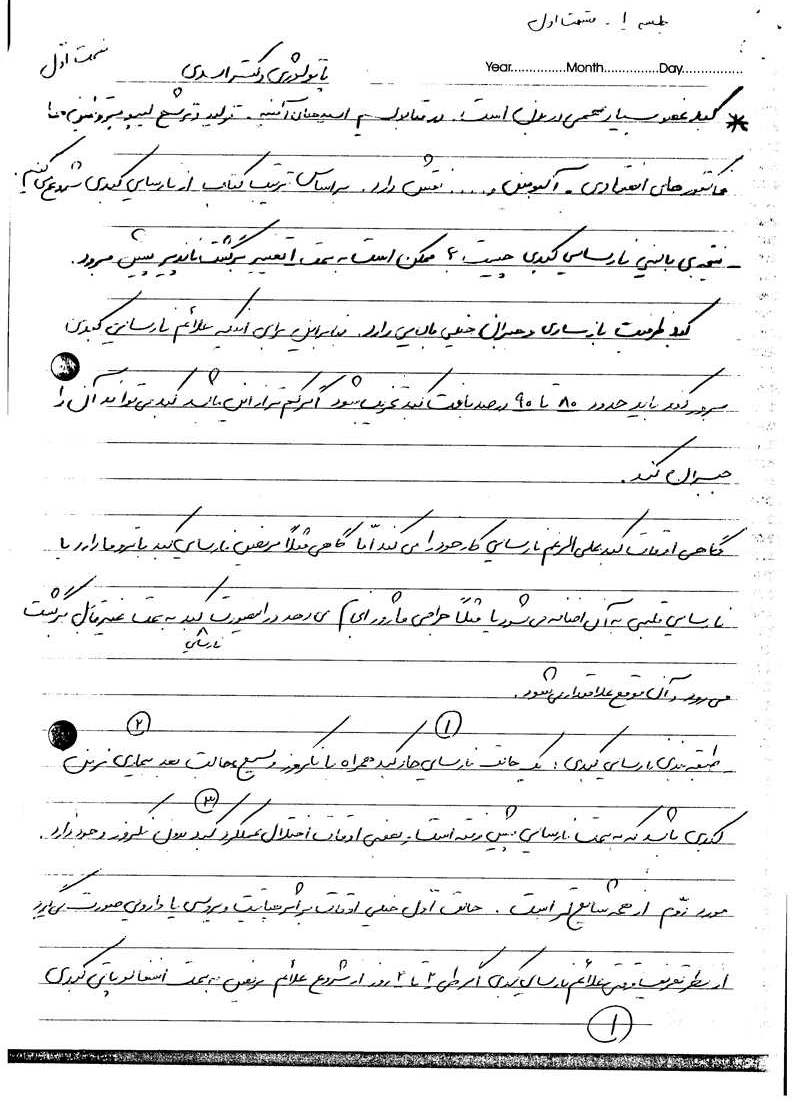 جلسه ۱. قسمت اول
قسمت اوّل
پاتولوژی دکتر اسدی
Year..............Month..............Day................
* کبد عضو بسیار مهمی در بدن است. در متابولیسم اسیدهای آمینه - تولید و ترشح لیپوپروتئین ها
فاکتورهای انعقادی - آلبومین و .... نقش دارد. براساس ترتیب کتاب از نارسایی کبدی شروع می کنیم.
- نتیجه ی بالینی نارسایی کبدی چیست؟ ممکن است به سمت تغییر برگشت ناپذیر پیش برود.
کبد ظرفیت بازسازی و جبران خیلی بالایی دارد. بنابراین برای اینکه علائم نارسایی کبدی
بروز کند باید حدود ۸۰ تا ۹۰ درصد بافت کبد تخریب شود اگر کم تر از این باشد کبد می تواند آن را
جبران کند.
گاهی اوقات کبد علی الرغم نارسایی کار خود را می کند امّا گاهی مثلاً مریض نارسایی کبد یا تروما دارد یا
نارسایی قلبی به آن اضافه می شود یا مثلاً جراحی ماژور انجام می دهد در اینصورت کبد به سمت غیرقابل برگشت
نارسایی
می رود و آن موقع علامتدار می شود.
- طبقه بندی نارسایی کبدی: یک حالت نارسایی حاد کبد همراه با نکروز وسیع ① حالت بعد بیماری مزمن ②
کبدی باشد که به سمت نارسایی پیش رفته است و بعضی اوقات اختلال عملکرد کبد بدون نکروز وجود دارد. ③
مورد دوّم از همه شایع تر است. حالت اوّل خیلی اوقات بر اثر هپاتیت ویروسی یا دارویی صورت می گیرد
از نظر تعریف وقتی علائم نارسایی کبدی اگر طی ۲ تا ۳ روز از شروع علائم مریض به سمت انسفالوپاتی کبدی
۱